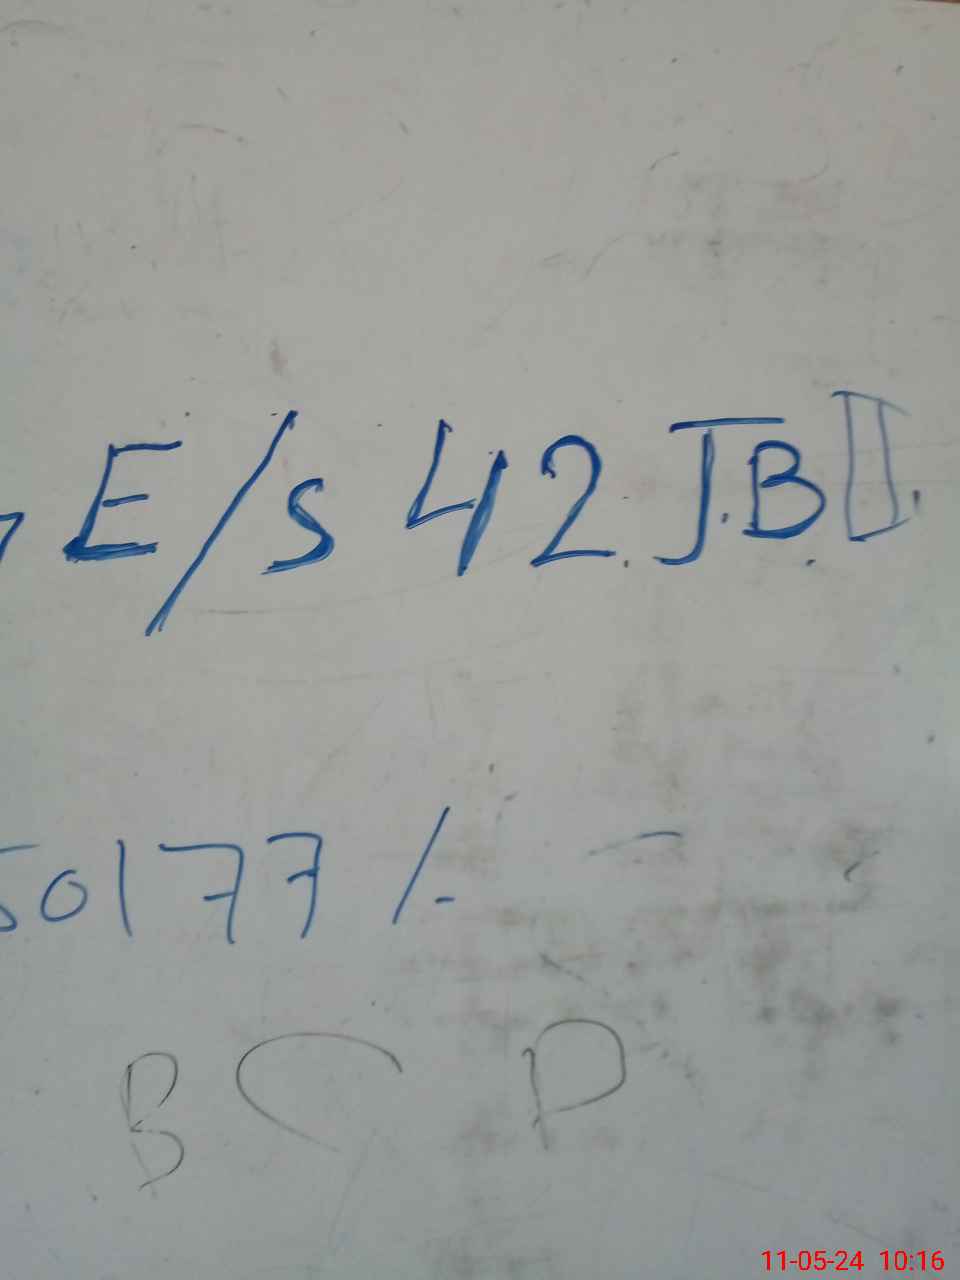 E/s 42 J.B II.
50177/-
B C P
11-05-24 10:16